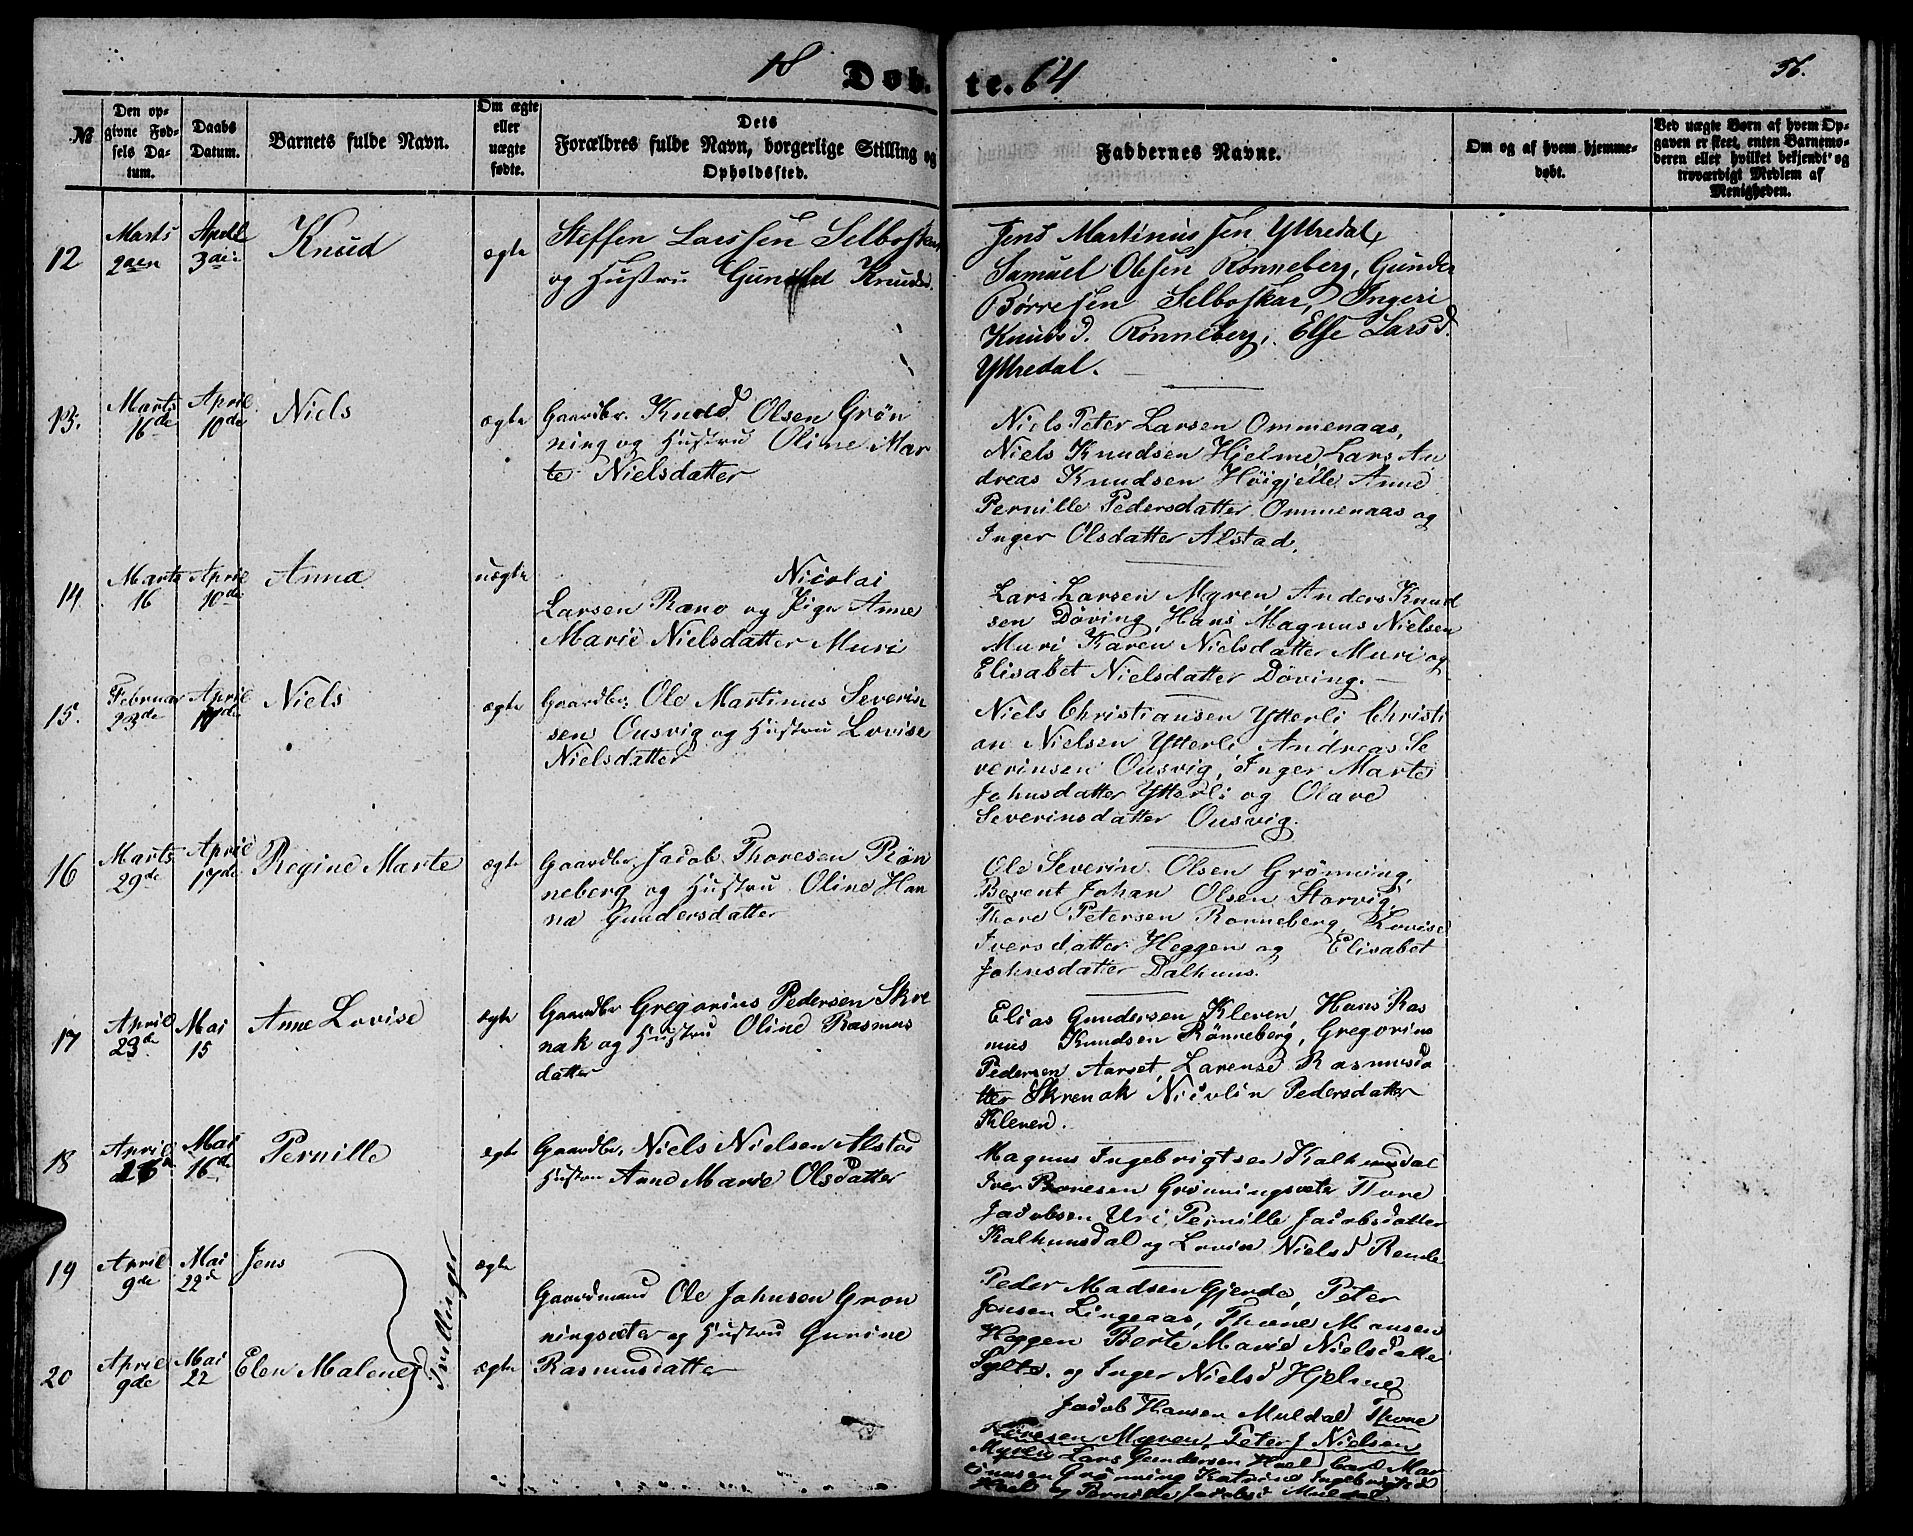 18 Døb-
te. 64
56.
№
Den op-
givne Fød-
sels Da-
tum.
Daabs
Datum.
Barnets fulde Navn.
Om ægte
eller
uægte
fødte.
Dets
Forældres fulde Navn, borgerlige Stilling og
Opholdssted.
Faddernes Navne.
Om og af hvem hjemme-
døbt.
Ved uægte Børn af hvem Op-
gaven er skeet, enten Barnemo-
deren eller hvilket bekjendt og
troværdigt Medlem af
Menigheden.
12
Marts
2den
April
3die
Knud
ægte
Steffen Larssen Selboskar
og Hustru Gunild Knudsd.
Jens Martinussen Yttredal,
Samuel Olsen Rønneberg, Gunder
Børresen Selboskar, Ingeri
Knudsd. Rønneberg, Else Larsd.
Yttredal.
13.
Marts
16de
April
10de
Niels
ægte
Gaardbr. Knud Olsen Grøn
ning og Hustru Oline Mar
te Nielsdatter
Niels Peter Larsen Ommenaas,
Niels Knudsen Hjelme, Lars An
dreas Knudsen Høigjelle, Anne
Pernille Pedersdatter Ommenaas og
Inger Olsdatter Alstad.
14
Marts
16
April
10de
Anna
uægte
Nicolai
Larsen Ræno og Pige Anne
Marie Nielsdatter Muri
Lars Larsen Myren Anders Knud
sen Døving, Hans Magnus Nielsen
Muri, Karen Nielsdatter Muri og
Elisabet Nielsdatter Døving.
15.
Februar
23de
April
17de
Niels
ægte
Gaardbr. Ole Martinus Severin
sen Ousvig og Hustru Lovise
Nielsdatter
Niels Christiansen Ytterli Christi
an Nielsen Ytterli Andreas Se
verinsen Ousvig, Inger Marte
Johnsdatter Ytterli og Olave
Severinsdatter Ousvig.
16
Marts
29de
April
17de
Regine Marte
ægte
Gaardbr Jacob Thoresen Røn
neberg og Hustru Oline Han
na Gundersdatter
Ole Severin Olsen Grønning,
Berent Johan Olsen Storvig,
Thore Petersen Rønneberg, Lovise
Iversdatter Heggen og Elisabet
Johnsdatter Dalhuus.
17
April
23de
Mai
15
Anne Lovise
ægte
Gaardbr Gregorius Pedersen Skre
nak og Hustru Oline Rasmus
datter
Elias Gundersen Kleven, Hans Ras
mus Knudsen Rønneberg, Gregorius
Pedersen Aarset, Larense Rasmusda
tter Skrenak Nicolin Pedersdatter
Kleven.
18
April
Mai
16de
Pernille
egte
Gaardbr. Niels Nielsen Alstad
Hustru Anne Marie Olsdatter
Magnus Ingebrigtsen Kalhusdal
Iver Thoresen Grønningsæter Thore
Jacobsen Uri, Pernille Jacobsdatter
Kalhusdal og Lovise Nielsd
19
April
9de
Mai
22d
Jens
ægte
Tvillinger
Gaardmand Ole Johnsen Grøn
ningsæter og Hustru Gunine
Rasmusdatter
Peder Madsen Gjerde, Peter
Jensen Lingeaas, Thore Monsen
Heggen Berte Marie Nielsdatter
Sylte. og Inger Nielsd Hjelme
20
April
9de
Mai
22
Elen Malene
ægte
Jacob Hansen Muldal Thore
Iversen Myren, Peter J Nielsen
Myren Lars Gundersen Lars Mar
tinusen Grønning Katrine Ingebrigtsd
og Pernille Jacobsd Muldal